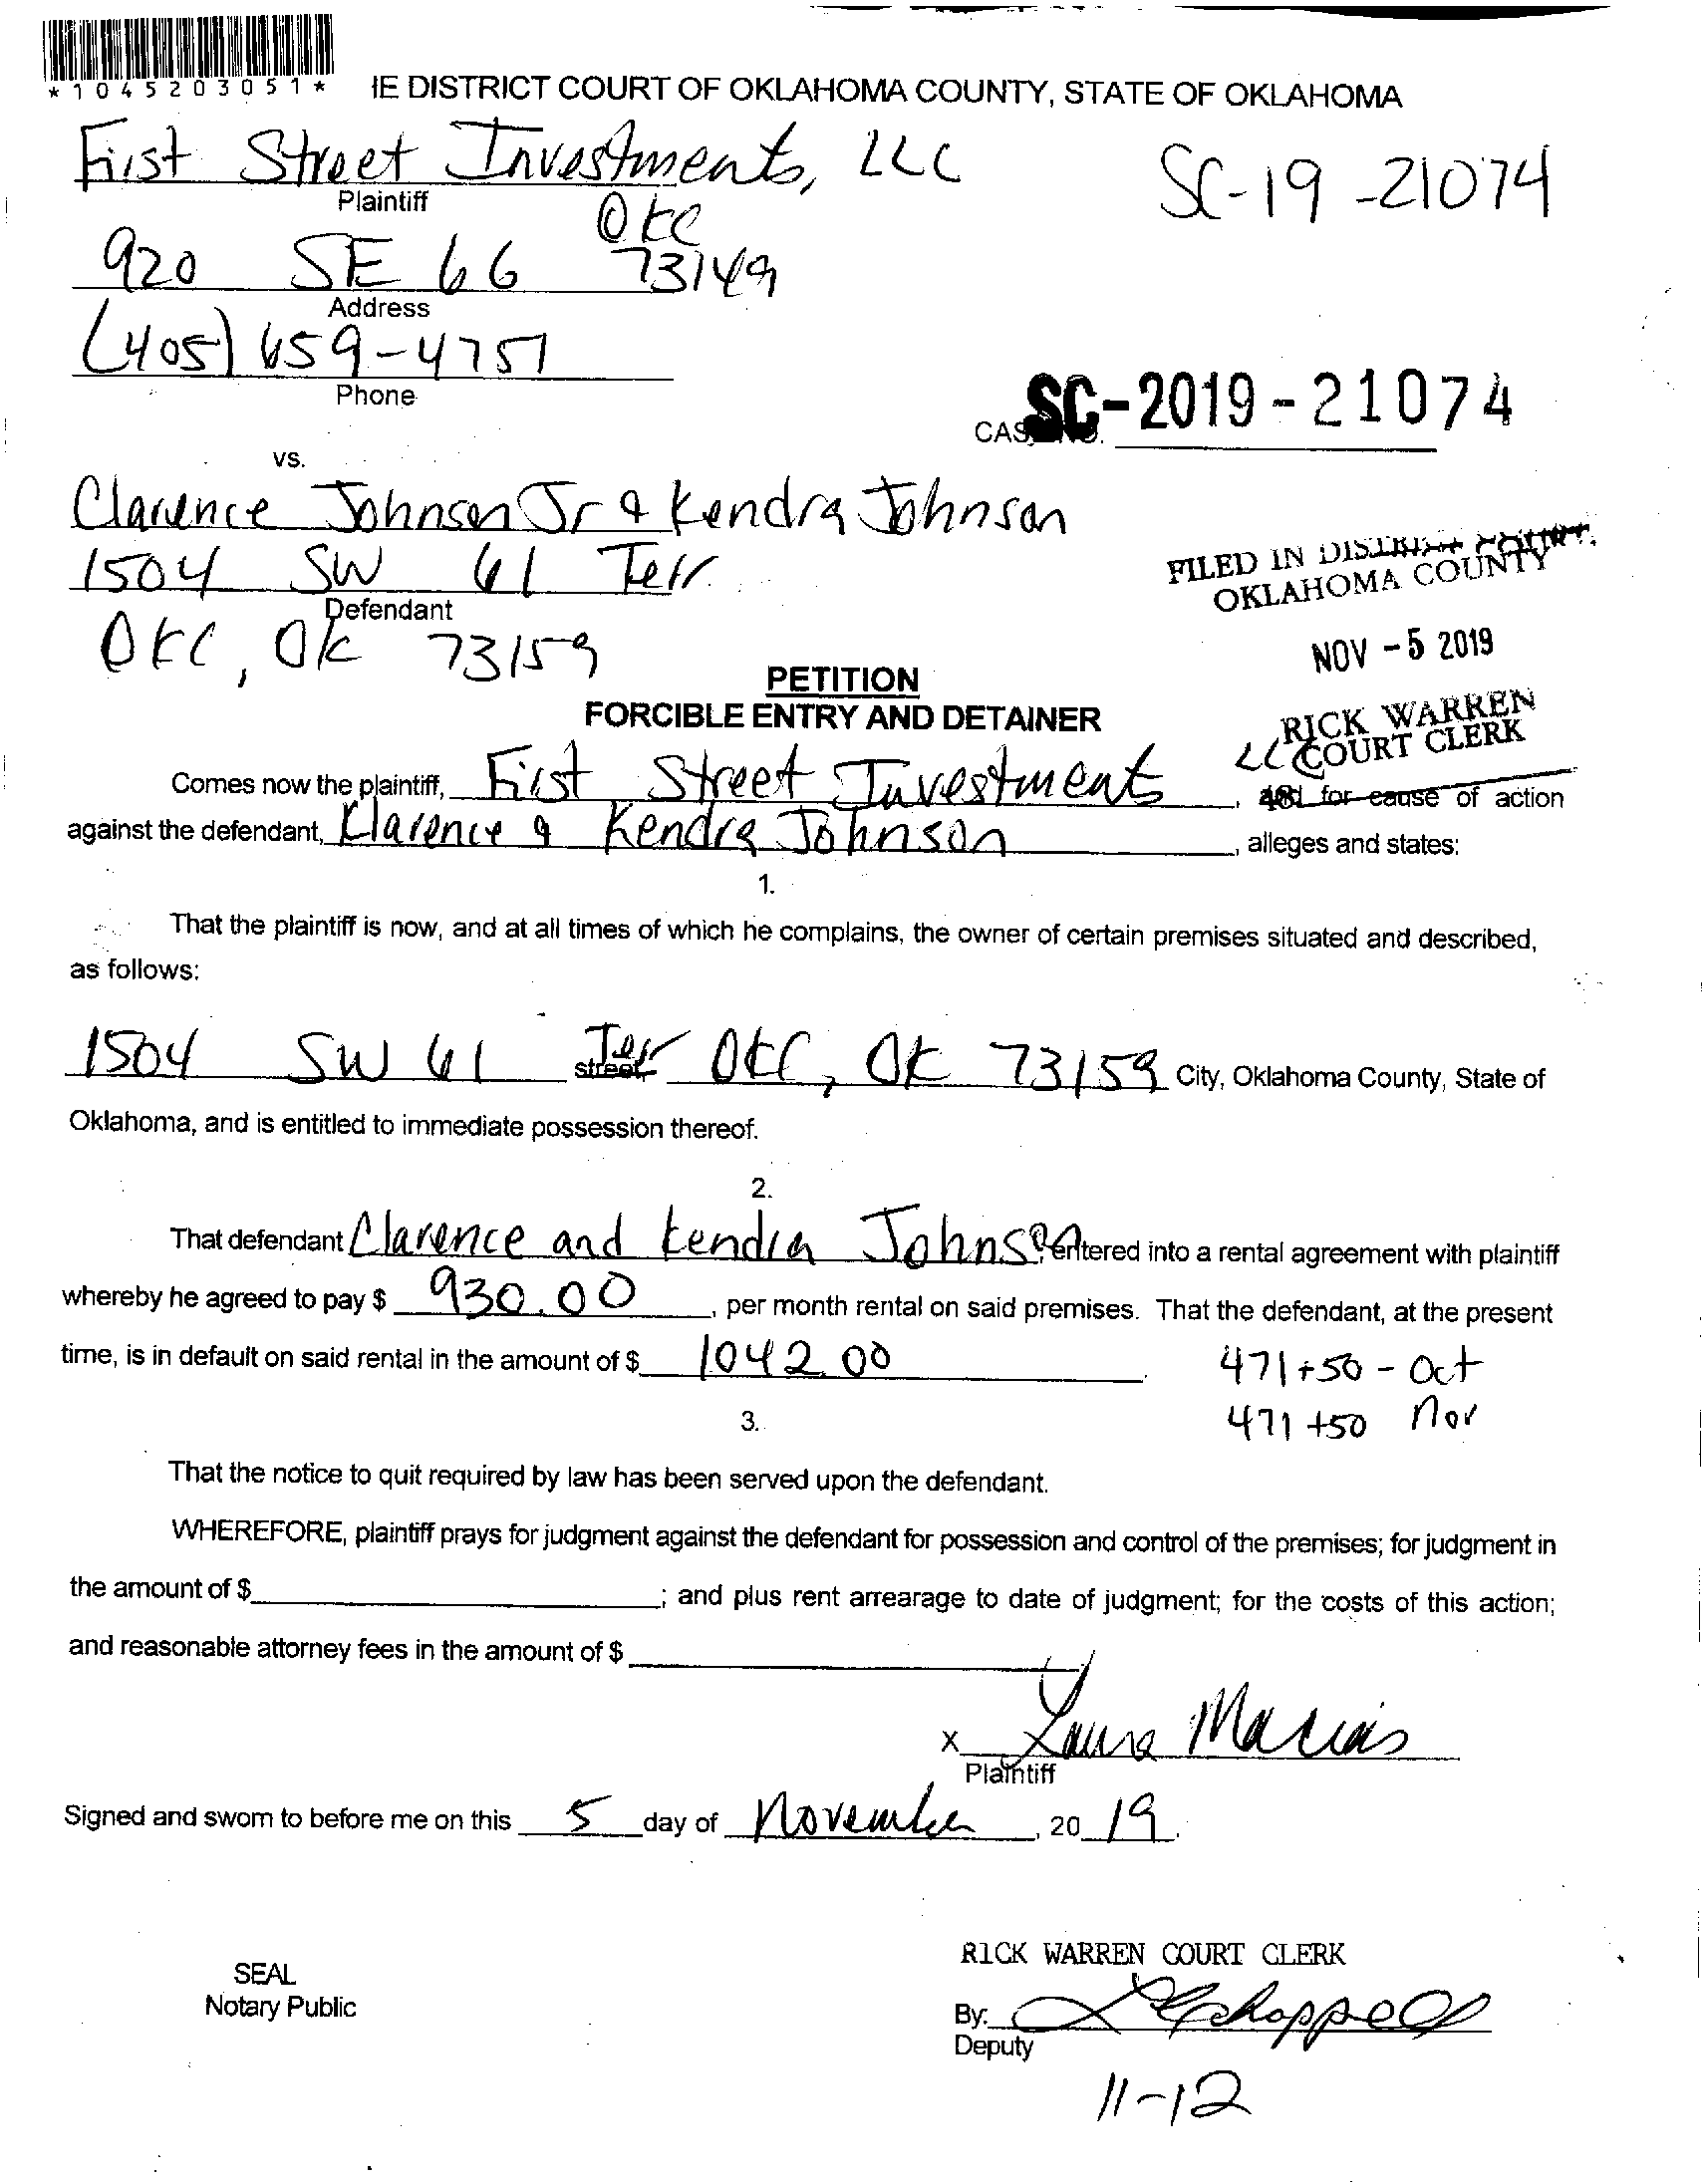 *1045203051*
IE DISTRICT COURT OF OKLAHOMA COUNTY, STATE OF OKLAHOMA
First Street Investments, LLC
SC-19-21074
Plaintiff
OKC
920 SE 66 73149
Address
(405) 659-4751
Phone
SC-2019-21074
CAS NO.
vs.
Clarence Johnson Jr & Kendra Johnson
1504 SW 61 Terr.
Defendant
OKC, OK 73159
FILED IN DISTRICT COURT
OKLAHOMA COUNTY
NOV -5 2019
RICK WARREN
COURT CLERK
PETITION
FORCIBLE ENTRY AND DETAINER
Comes now the plaintiff, First Street Investments LLC, and for cause of action
against the defendant, Clarence & Kendra Johnson, alleges and states:
1.
That the plaintiff is now, and at all times of which he complains, the owner of certain premises situated and described,
as follows:
1504 SW 61 Terr street, OKC, OK 73159 City, Oklahoma County, State of
Oklahoma, and is entitled to immediate possession thereof.
2.
That defendant Clarence and Kendra Johnson entered into a rental agreement with plaintiff
whereby he agreed to pay $ 930.00, per month rental on said premises. That the defendant, at the present
time, is in default on said rental in the amount of $ 1042.00.
471+50 - Oct
471+50 Nov
3.
That the notice to quit required by law has been served upon the defendant.
WHEREFORE, plaintiff prays for judgment against the defendant for possession and control of the premises; for judgment in
the amount of $ ; and plus rent arrearage to date of judgment; for the costs of this action;
and reasonable attorney fees in the amount of $
x Laura Macias
Plaintiff
Signed and sworn to before me on this 5 day of November, 20 19.
SEAL
Notary Public
RICK WARREN COURT CLERK
By: Chappell
Deputy
11-12